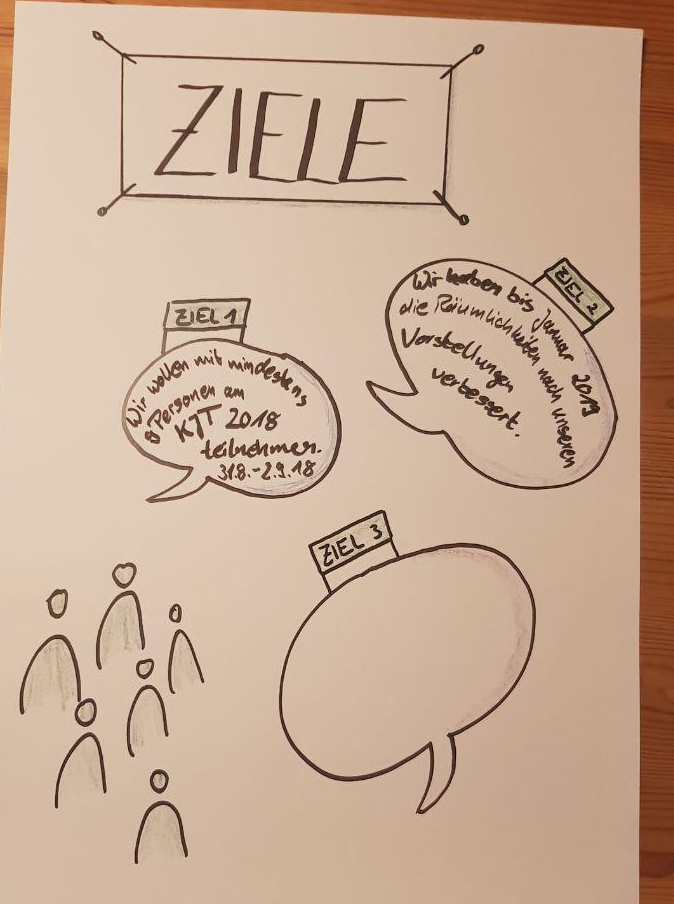 ZIELE
ZIEL 1
Wir wollen mit mindestens
8 Personen am
KJT 2018
teilnehmen.
31.8.-2.9.18
ZIEL 2
Wir haben bis Januar 2019
die Räumlichkeiten nach unseren
Vorstellungen
verbessert.
ZIEL 3